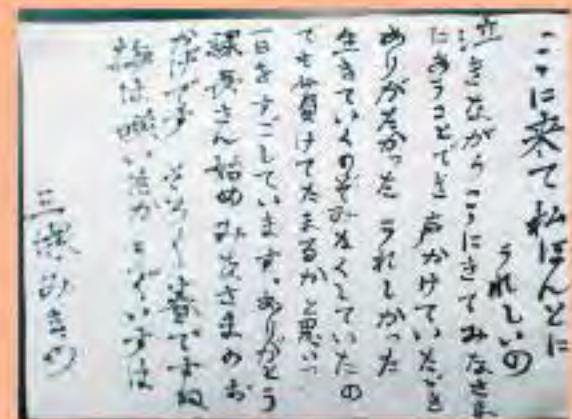 ここに来て私ほんとに
うれしいの
泣きながらここにきてみなさま
にあうことでき声かけていただき
ありがたかったうれしかった
生きていくのぞみなくしていたの
でも負けてたまるかと思いつ
一日をすごしています。ありがとう
課長さん始めみなさまのお
かげです そろそろ春ですね
梅は咲い
三塚みきの